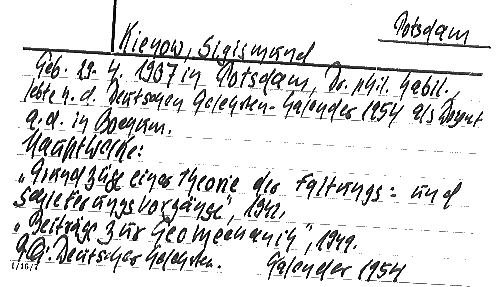 Potsdam
Kienow, Sigismund
Geb. 29. 4. 1907 in Potsdam, Dr. phil. habil.,
lebte n. d. Deutschen Gelehrten-Kalender 1954 als Dozent
a.d. in Bochum.
Hauptwerke:
„Grundzüge einer Theorie der Faltungs= und
Schieferungsvorgänge", 1942.
„Beiträge zur Geomechanik", 1949.
Deutscher Gelehrten. Kalender 1954